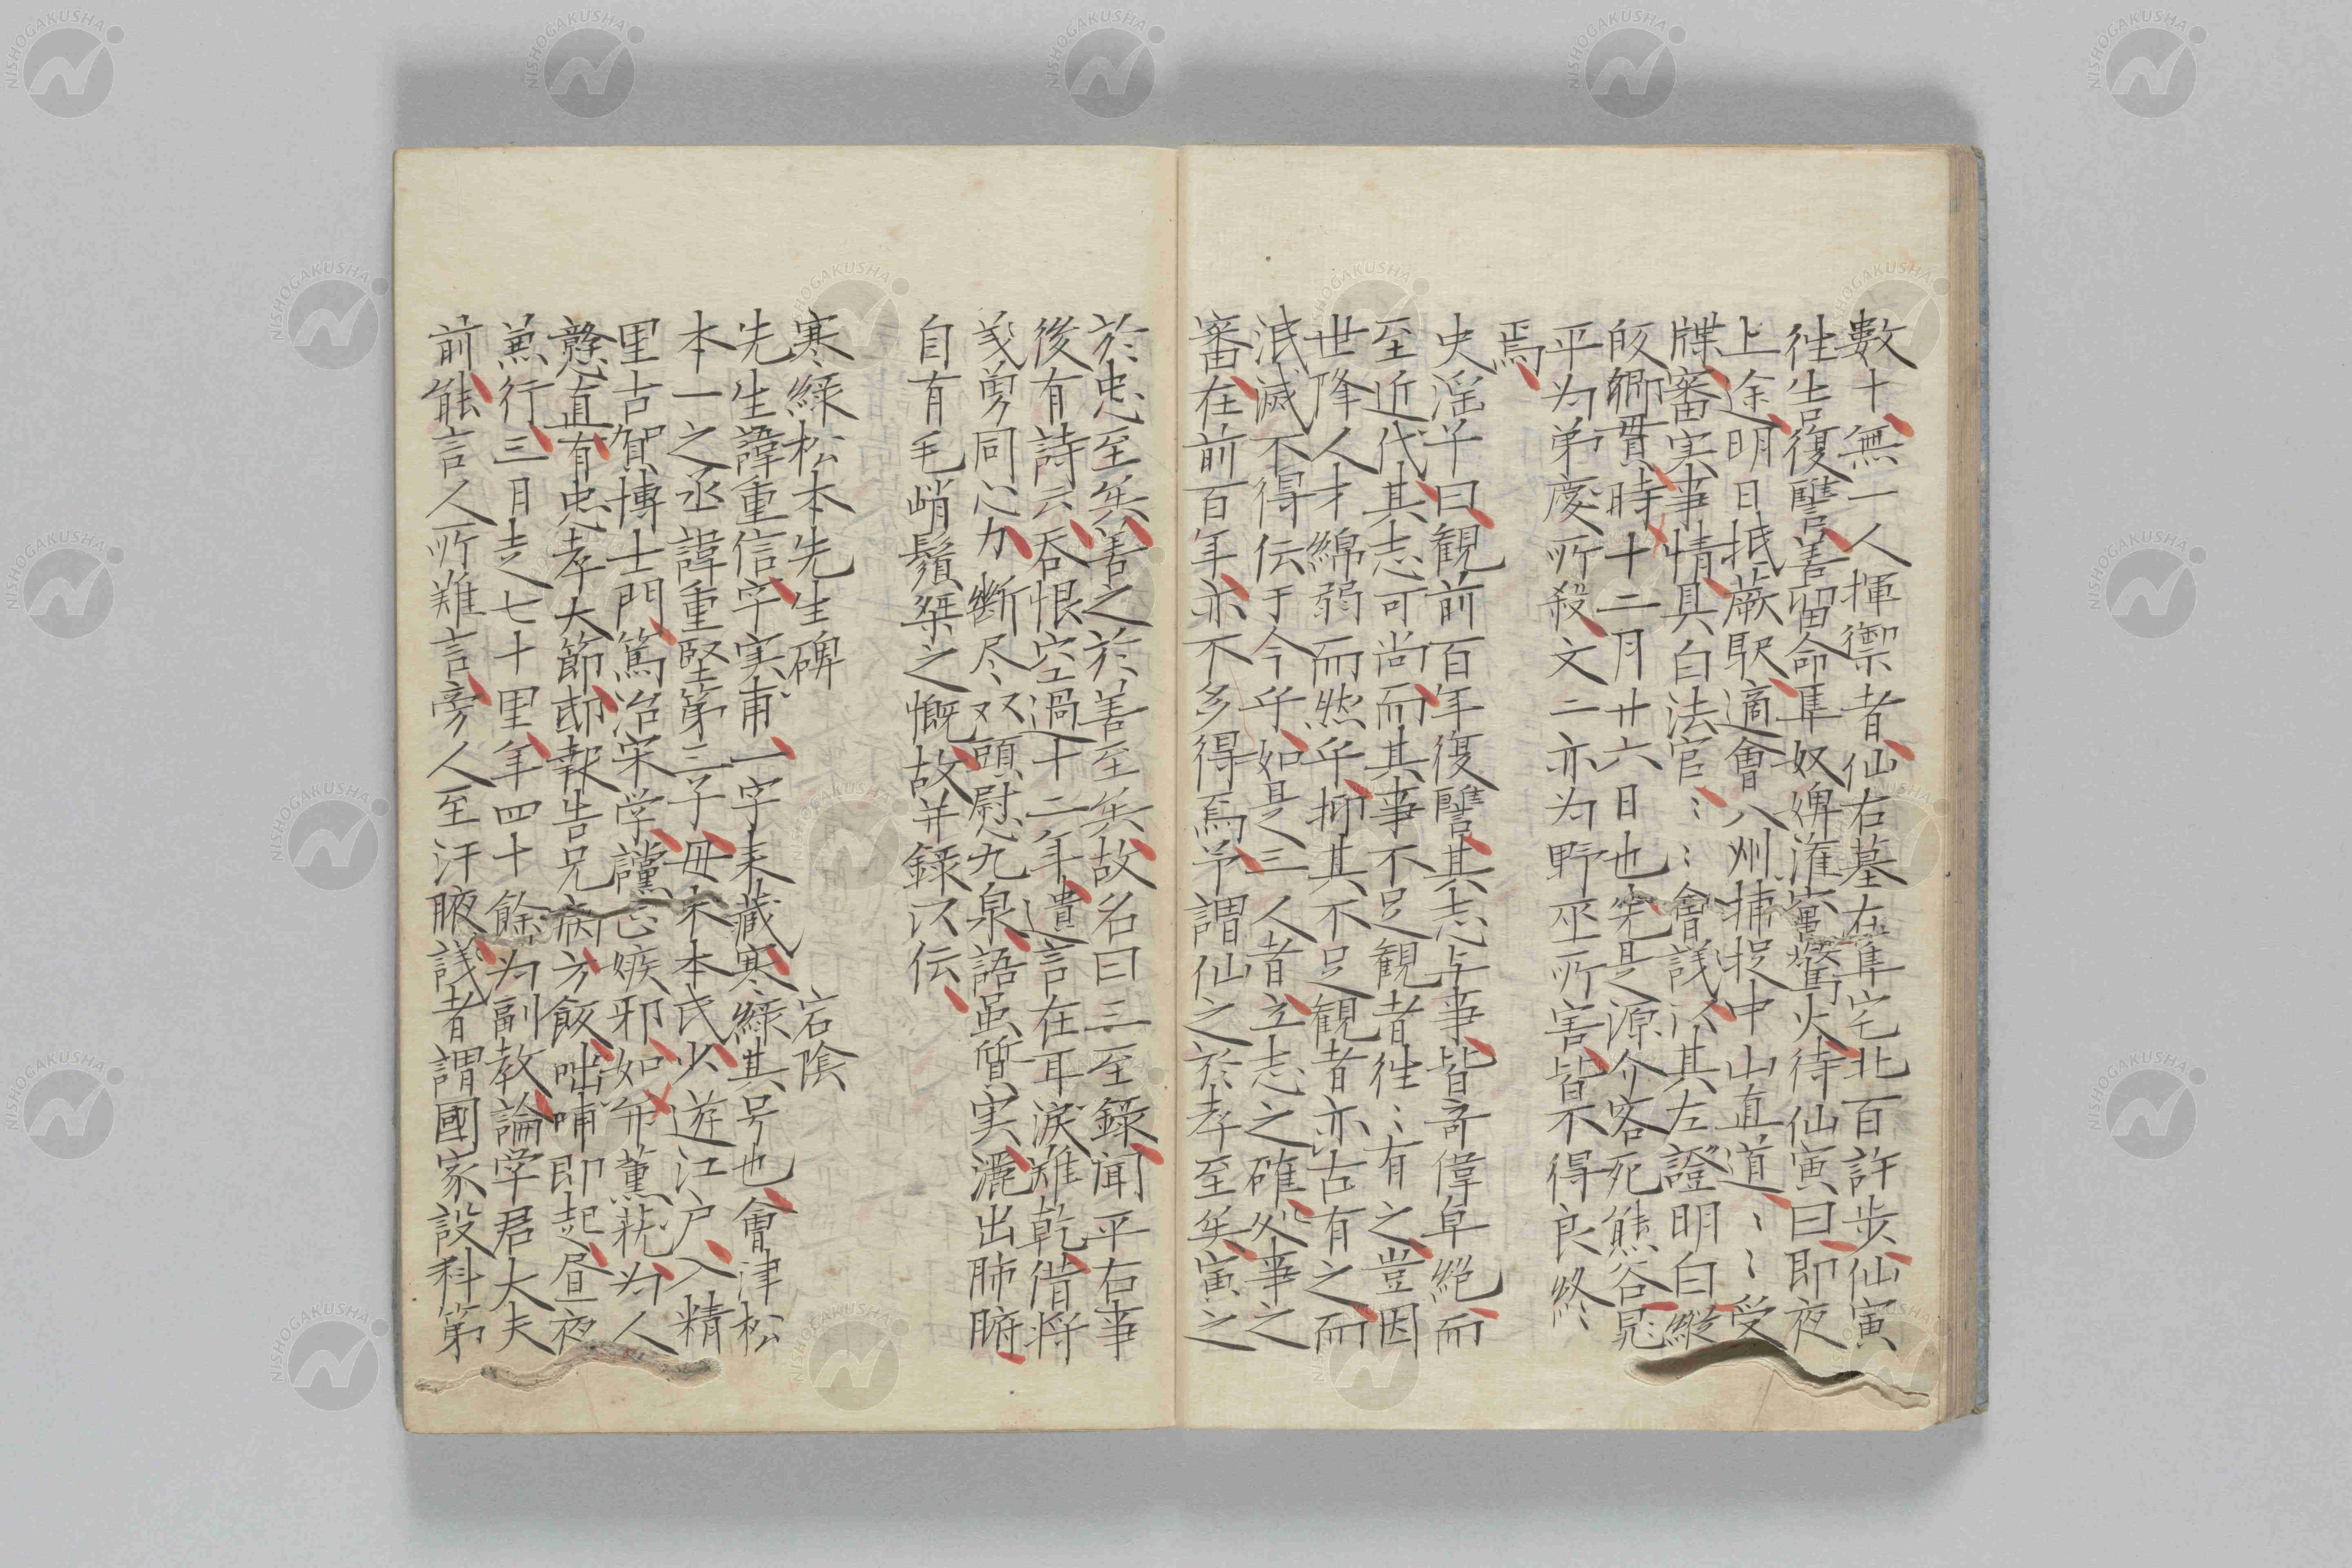 數十無一人揮禦者仙右墓在隼宅北百許步仙寅
往告復讐善留命隼奴婢滙竈警火待仙寅曰即夜
上途明日抵蕨駅適會八州捕捉中山直道〻〻受
牒審実事情具白法官〻〻會議以其左證明白縱
皈郷貫時十二月廿六日也先是源介客死熊谷晃
平为弟慶所殺文二亦为野巫所害皆不得良終
焉
史滛子曰観前百年復讐其志与事皆奇偉卓絕而
至近代其志可尚而其事不足観者往〻有之豈因
世降人才綿弱而然乎抑其不足観者亦古有之而
泯滅不得伝于今乎如是三人者立志之確処事之
審在前百年亦不多得焉予謂仙之於孝至矣寅之
於忠至矣善之於善至矣故名曰三至錄聞平右事
後有詩云吞恨空過十二年遺言在耳淚難乾借将
義勇同心力斷尽双頭慰九泉語虽質実灑出肺腑
自有毛峭鬚桀之慨故并錄以伝
寒綠松本先生碑
宕陰
先生諱重信字実甫一字来藏寒綠其号也會津松
本一之丞諱重堅第三子母木本氏少遊江户入精
里古賀博士門篤治宋学讜忘嫉邪如𠇾薰蕕为人
戇直有忠孝大節邸報告兄病方飯咄哺即起昼夜
兼行三日走七十里年四十餘为副教論学君大夫
前能言人所难言旁人至汗腋議者謂國家設科第